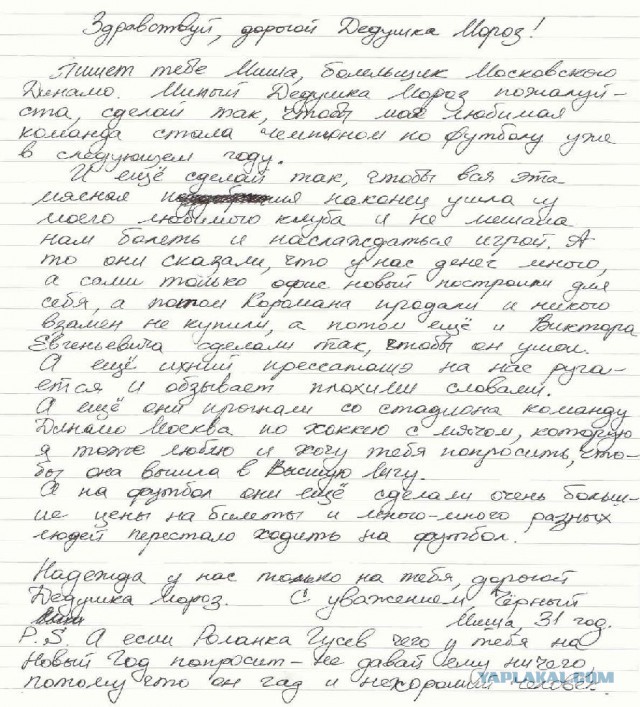 Здравствуй, дорогой Дедушка Мороз!
Пишет тебе Миша, болельщик Московского
Динамо. Милый Дедушка Мороз пожалуй-
ста, сделай так, чтобы моя любимая
команда стала чемпионом по футболу уже
в следующем году.
И ещё сделай так, чтобы вся эта
мясная наконец ушла из
моего любимого клуба и не мешала
нам болеть и наслаждаться игрой. А
то они сказали, что у нас денег много,
а сами только офис новый построили для
себя, а потом Коромана продали и никого
взамен не купили, а потом ещё и Виктора
Евгеньевича сделали так, чтобы он ушёл.
А ещё ихний прессаташэ на нас руга-
ется и обзывает плохими словами.
А ещё они прогнали со стадиона команду
Динамо Москва по хоккею с мячом, которую
я тоже люблю и хочу тебя попросить, что-
бы она вышла в Высшую лигу.
А на футбол они ещё сделали очень больш-
ие цены на билеты и много-много разных
людей перестало ходить на футбол.
Надежда у нас только на тебя, дорогой
Дедушка Мороз. С уважением Чёрный
Миша, 31 год.
P.S А если Роланка Гусев чего у тебя на
Новый Год попросит - не давай ему ничего
потому что он гад и нехороший человек.
YAPLAKAL.COM